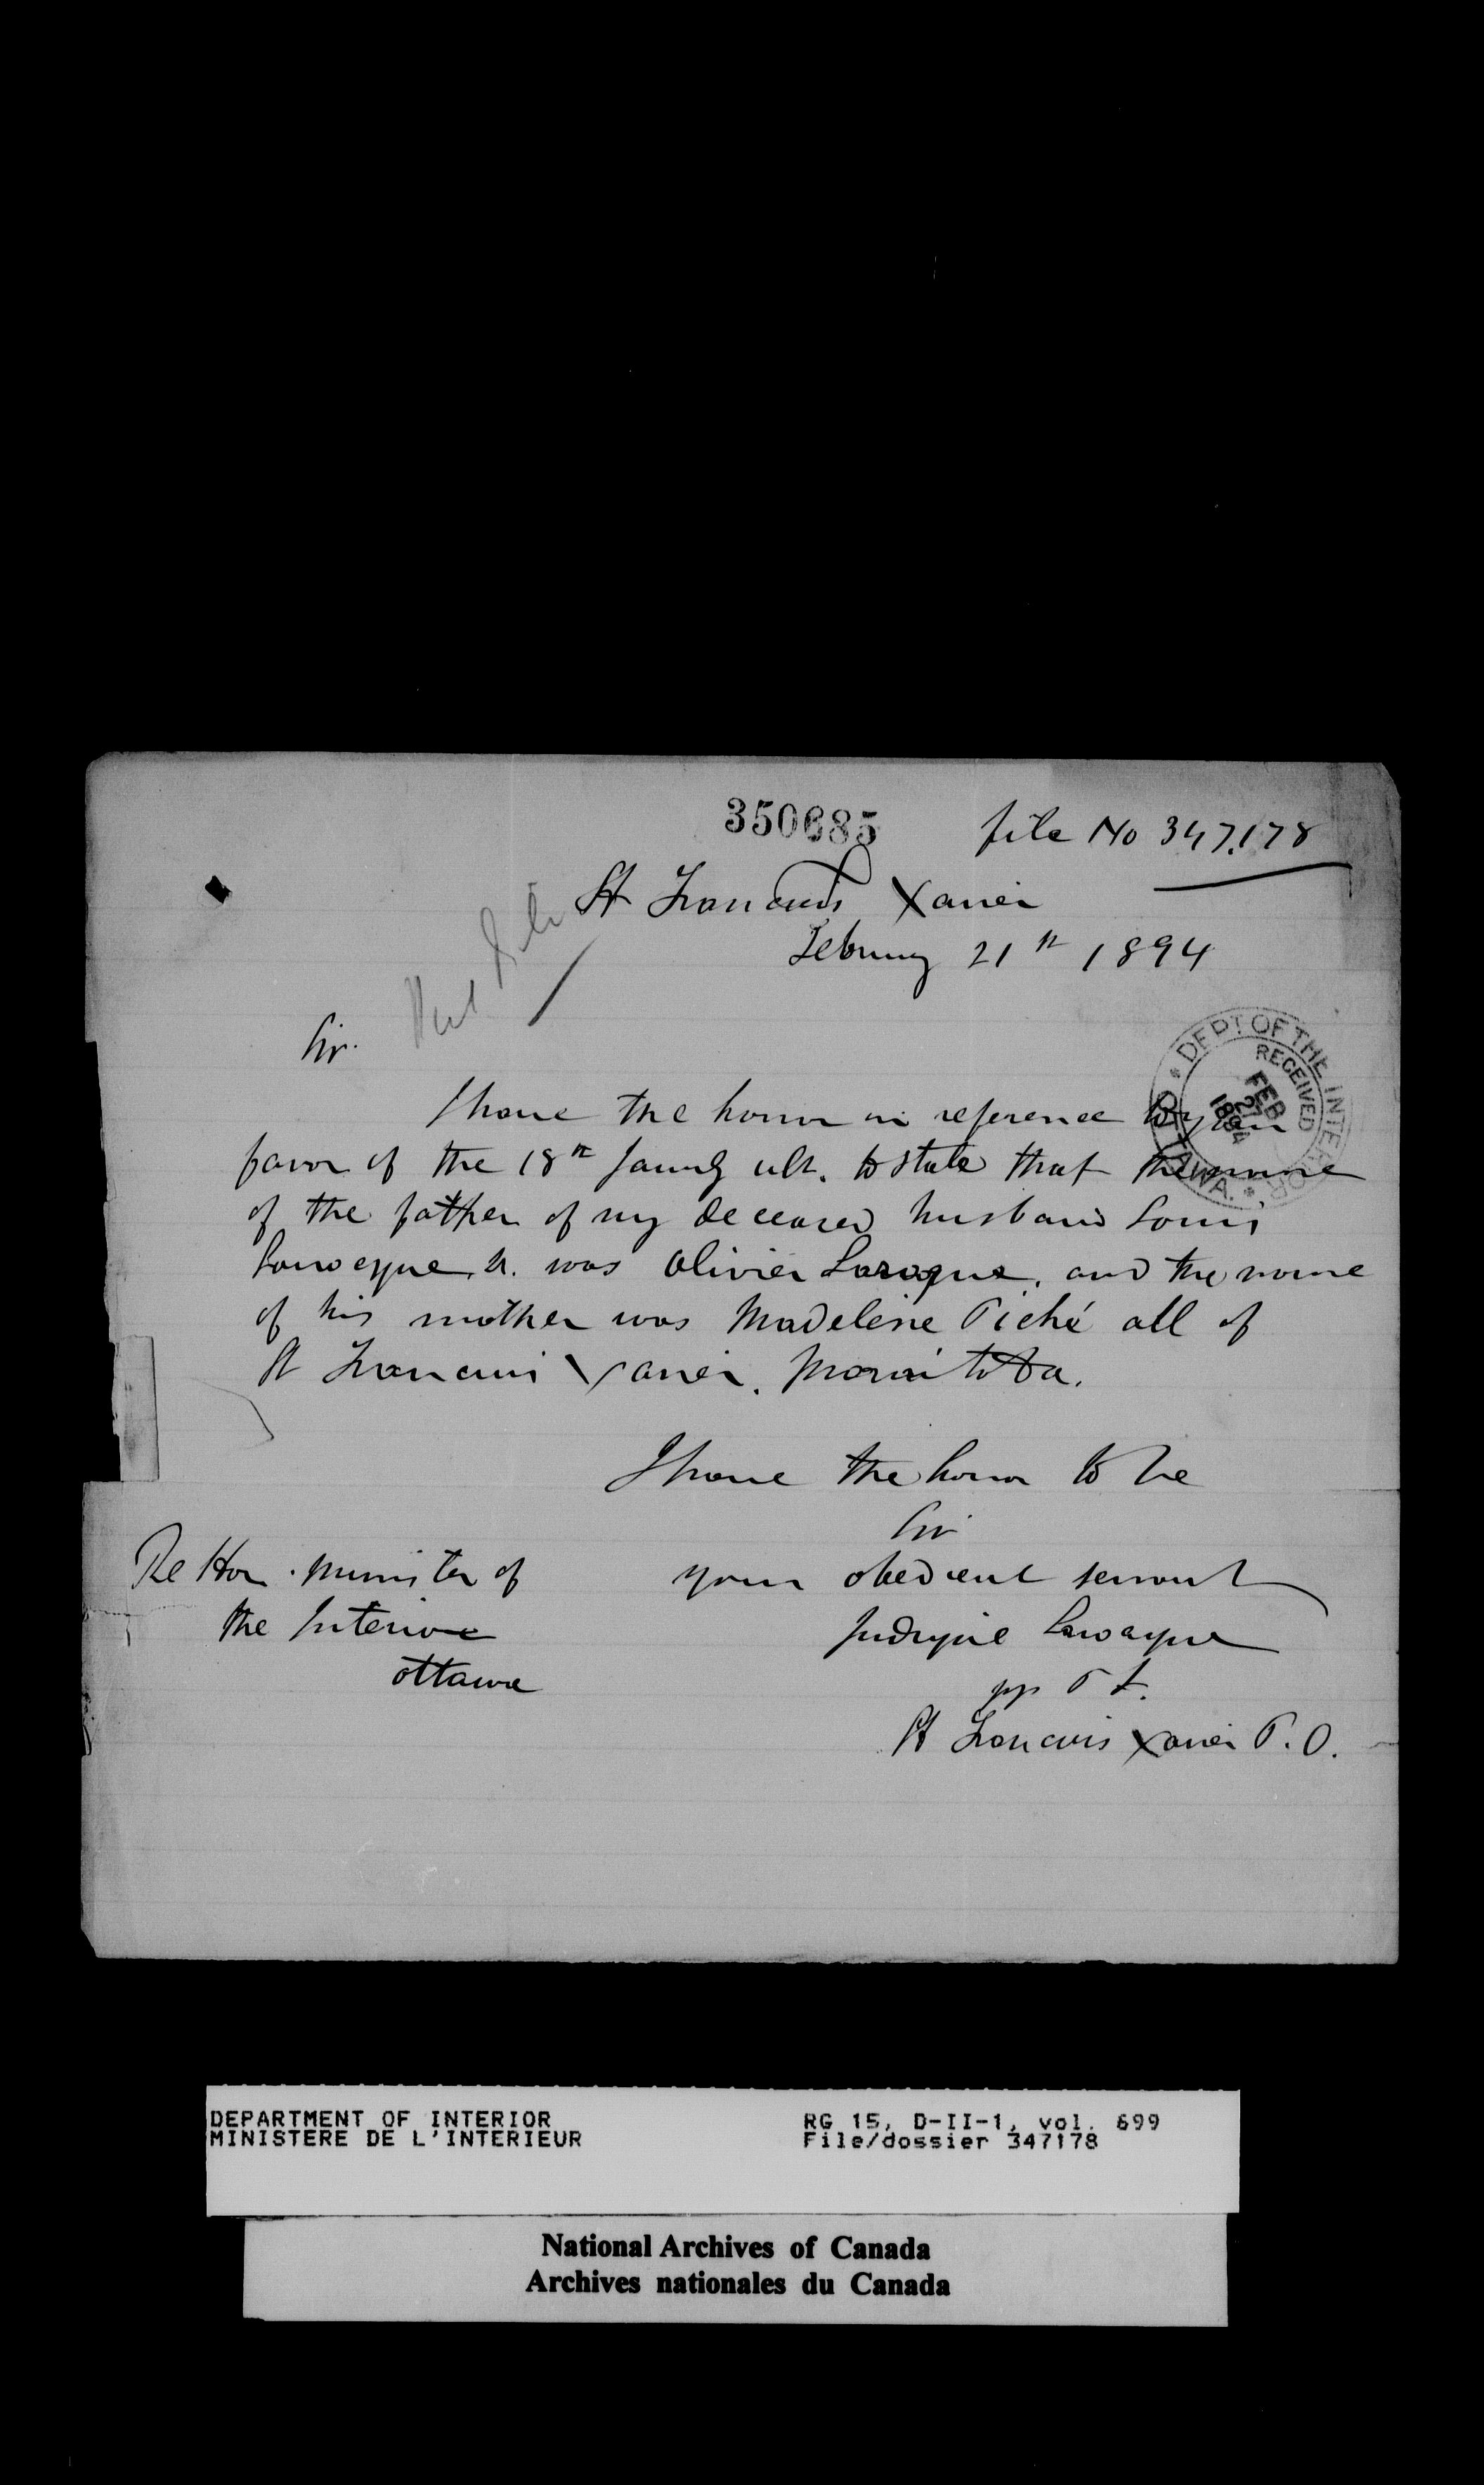 350685 file No 347,178
St Francois Xavier
February 21st 1894
Sir.
DEPT OF THE INTERIOR
RECEIVED
FEB 27 1894
OTTAWA.
I have the honor in reference to your
favor of the 18th Januy ult. to state that the name
of the father of my deceased husband Louis
was Olivier Laroque, and the name
of his mother was Madeleine Piché all of
St Francois Xavier. Manitoba.
I have the honor to be
Sir
your obedient servant
pp
St Francois Xavier P.O.
The Hon. Minister of
the Interior
Ottawa
DEPARTMENT OF INTERIOR
MINISTERE DE L'INTERIEUR
RG 15, D-II-1, vol. 699
File/dossier 347178
National Archives of Canada
Archives nationales du Canada